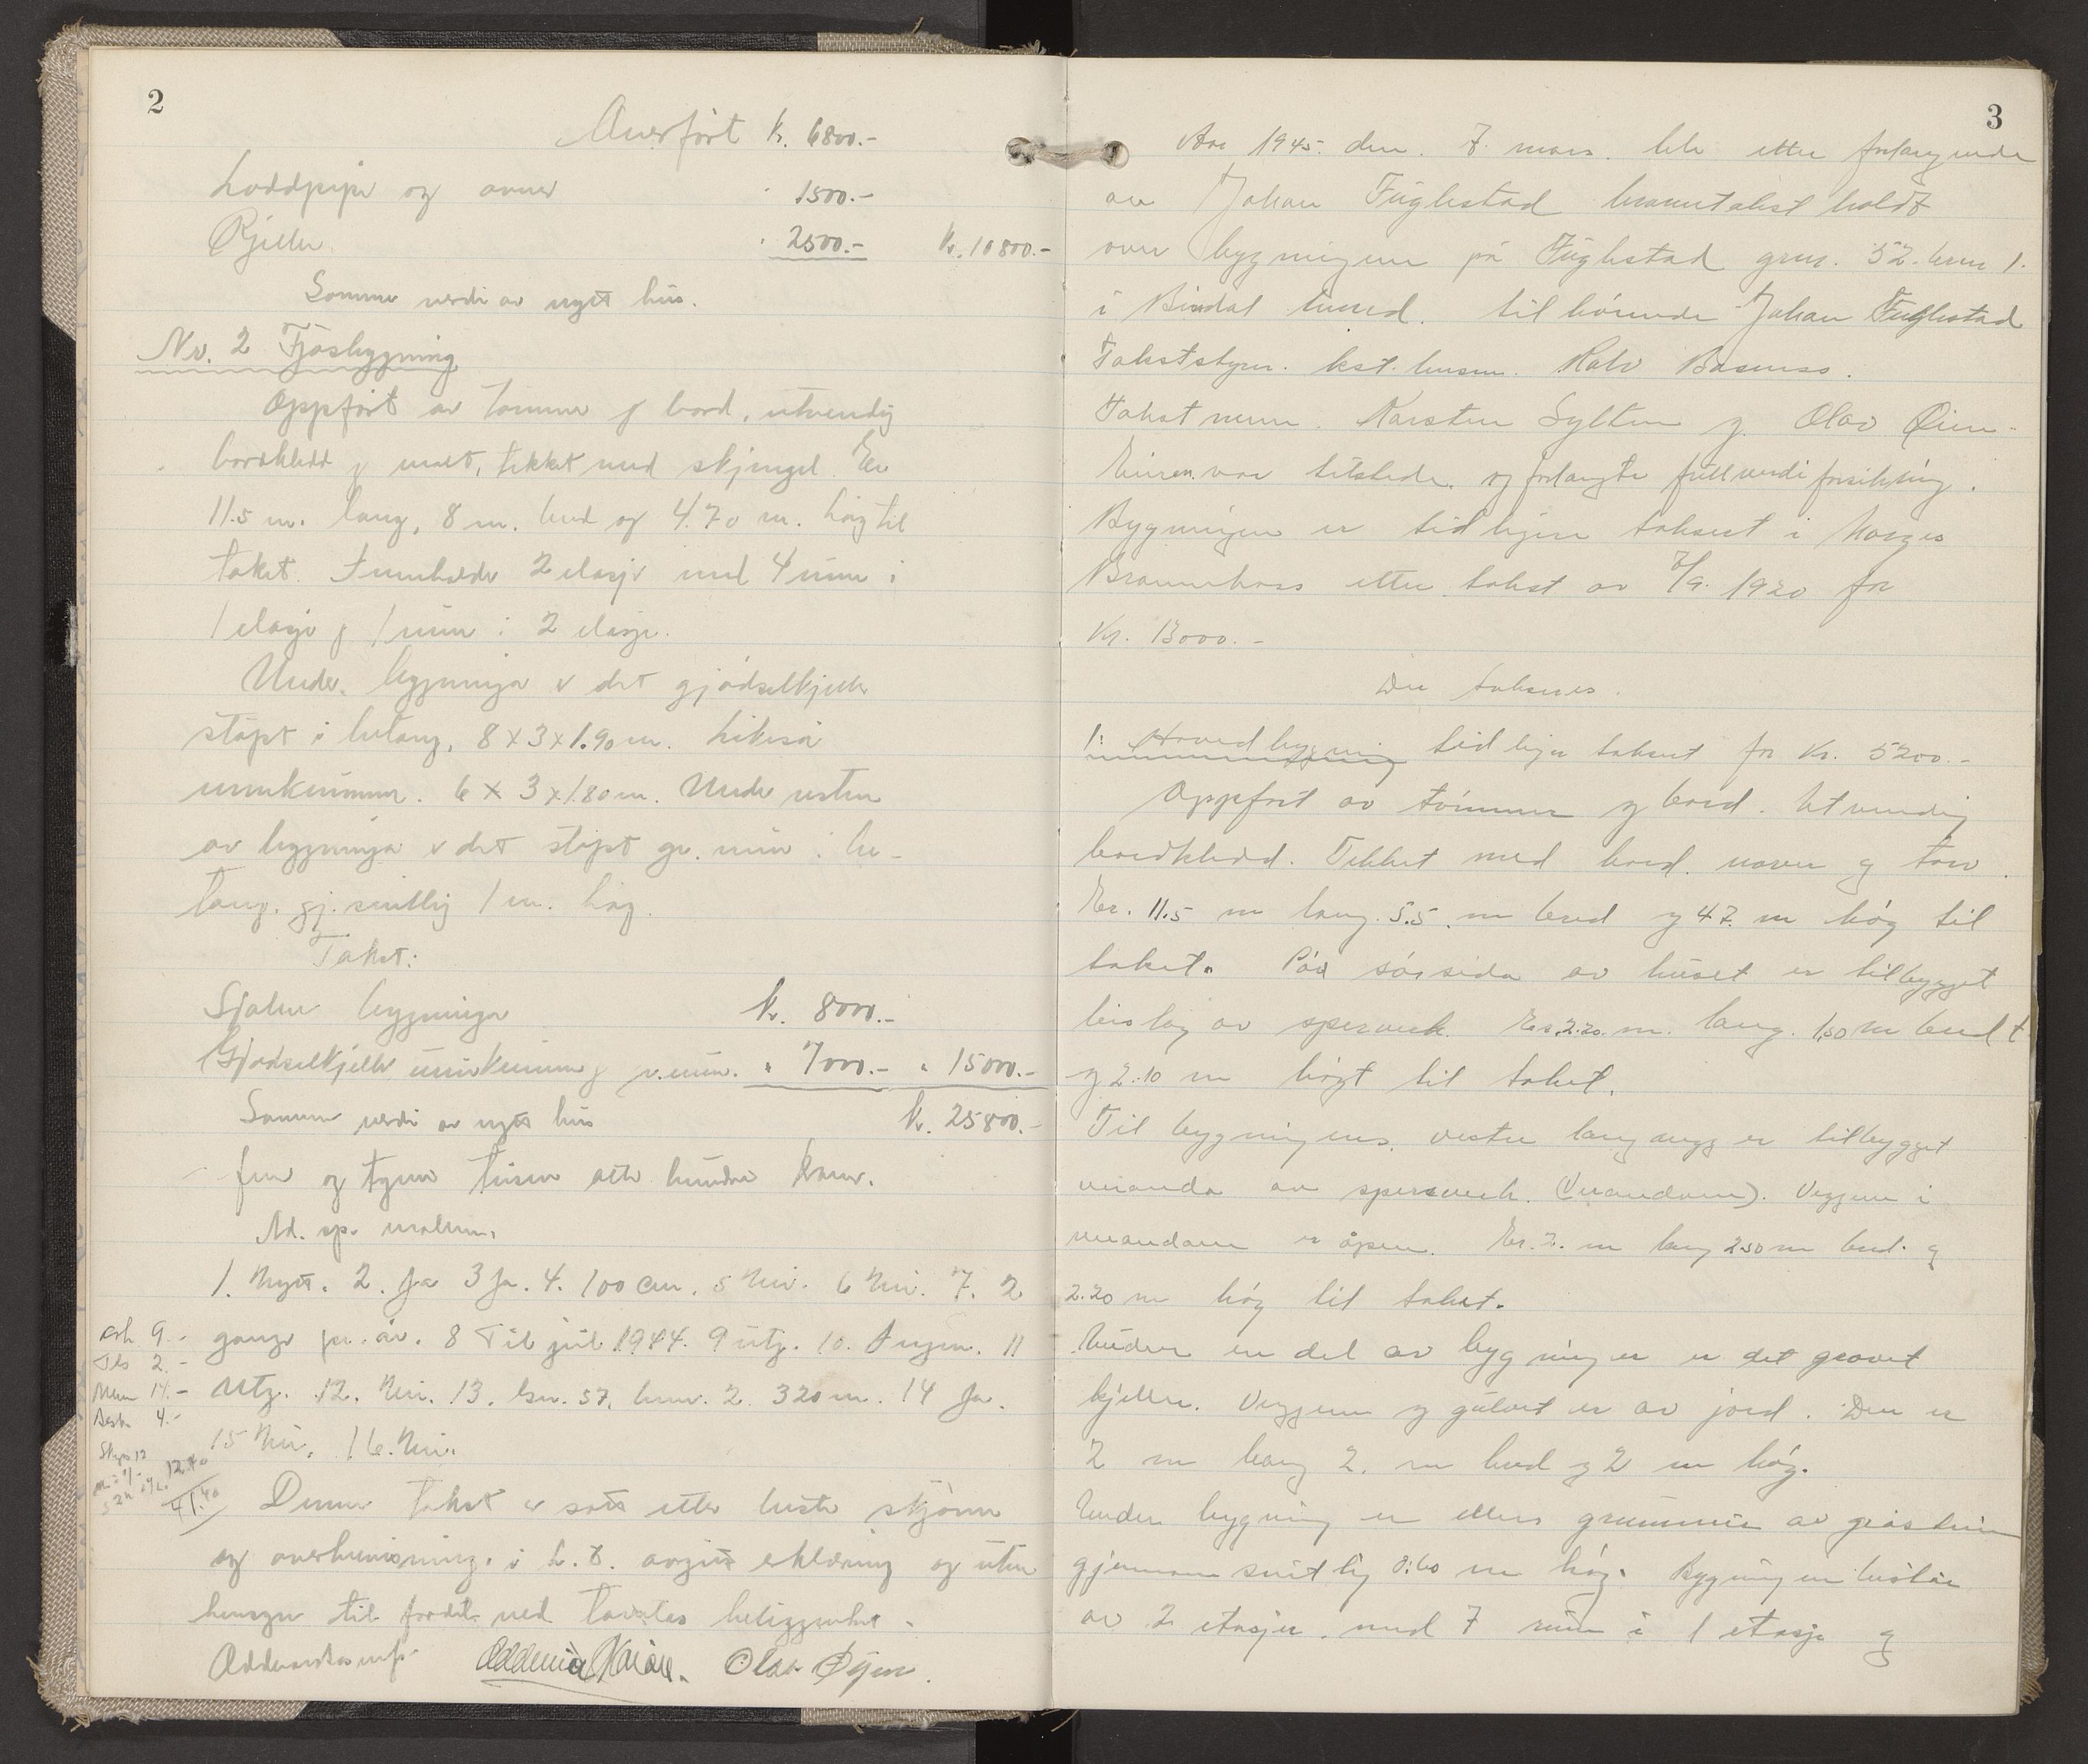 2
Overført kr. 6800.-
Loddpipe og ovner " 1500.-
Kjeller " 2500.- Kr. 10800.-
Samme verdi av nytt hus.
No. 2 Fjøsbygning
Oppført av tømmer og bord, utvendig
bordkledd og malt, tekket med skjengel. Er
11.5 m. lang, 8 m. bred og 4.70 m. høg til
taket. Inneholder 2 etasjer med 4 rum i
1 etasje og 1 rum i 2 etasje.
Under bygninga er det gjødselkjeller
støpt i betong, 8 x 3 x 1.90 m. Likeså
urinkummer. 6 x 3 x 1.80 m. Under resten
av bygninga er det støpt gr. mur i be-
tong. gj. snittlig 1 m. høg.
Takst:
Sjølve bygninga kr. 8000.-
Gjødselkjeller urinkum og gr. mur. " 7000.- " 15000.-
Samme verdi av nytt hus kr. 25800.-
fem og tyve tusen åtte hundre kroner.
Ad. sp. målene.
1. Nytt. 2. Ja 3 Ja. 4. 100 cm. 5 Nei. 6 Nei. 7. 2
ganger pr. år. 8 Til jul 1944. 9 utg. 10. Ingen. 11
Utg. 12. Nei. 13. bnr. 57. bnr. 2. 320 m. 14 Ja.
15 Nei. 16. Nei.
9.-
2.-
14.-
4.-
Skyss 12
12.40
41.40
Denne takst er satt etter beste skjønn
og overbevisning i h. t. avgitt erklæring og uten
hensyn til fordel ved tomtens beliggenhet.
Olav Øyen.
3
Aar 1945. den. 7. mars. ble etter forlangende
av Johan Fuglestad branntakst holdt
over bygningene på Fuglestad gnr. 52. bnr 1.
i Bindal herred. tilhørende Johan Fuglestad
Takststyrer. kst. lensm. Ralv Bosness.
Takstmenn. Karsten Sylten og Olav Øien.
Eieren var tilstede. og forlangte fullverdiforsikring.
Bygningen er tidligere taksert i Norges
Brannkass etter takst av 8/9. 1920 for
Kr. 13000.-
Der takseres.
1: Hovedbygning tidliger taksert for Kr. 5200.-
Oppført av tømmer og bord. Utvendig
bordkledd. Tekket med bord. never og torv.
Er. 11.5 m lang. 5.5. m bred og 4.7. m høg til
taket. På sørsida av huset er tilbygget
bislag av sperverk. Er 2.20. m. lang. 1,50 m bredt
og 2.10 m høgt til taket.
Til bygningens vestre langvegg er tilbygget
veranda av spersverk. (Verandaen). Veggene i
verandaen er åpen. Er. 2. m lang 2.50 m bred. og
2.20 m høg til taket.
Under en del av bygningen er det gravet
kjeller. Veggene og gulvet er av jord. Den er
2 m lang 2. m bred og 2 m høg.
Under bygning er ellers grunnmur av gråstein
gjennomsnitlig 0.60 m høg. Bygningen består
av 2 etasjer. med 7 rum i 1 etasje og